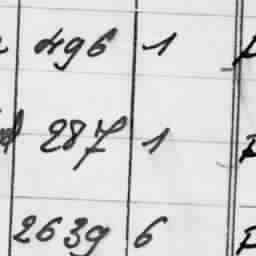 496 1
287 1
2639 6